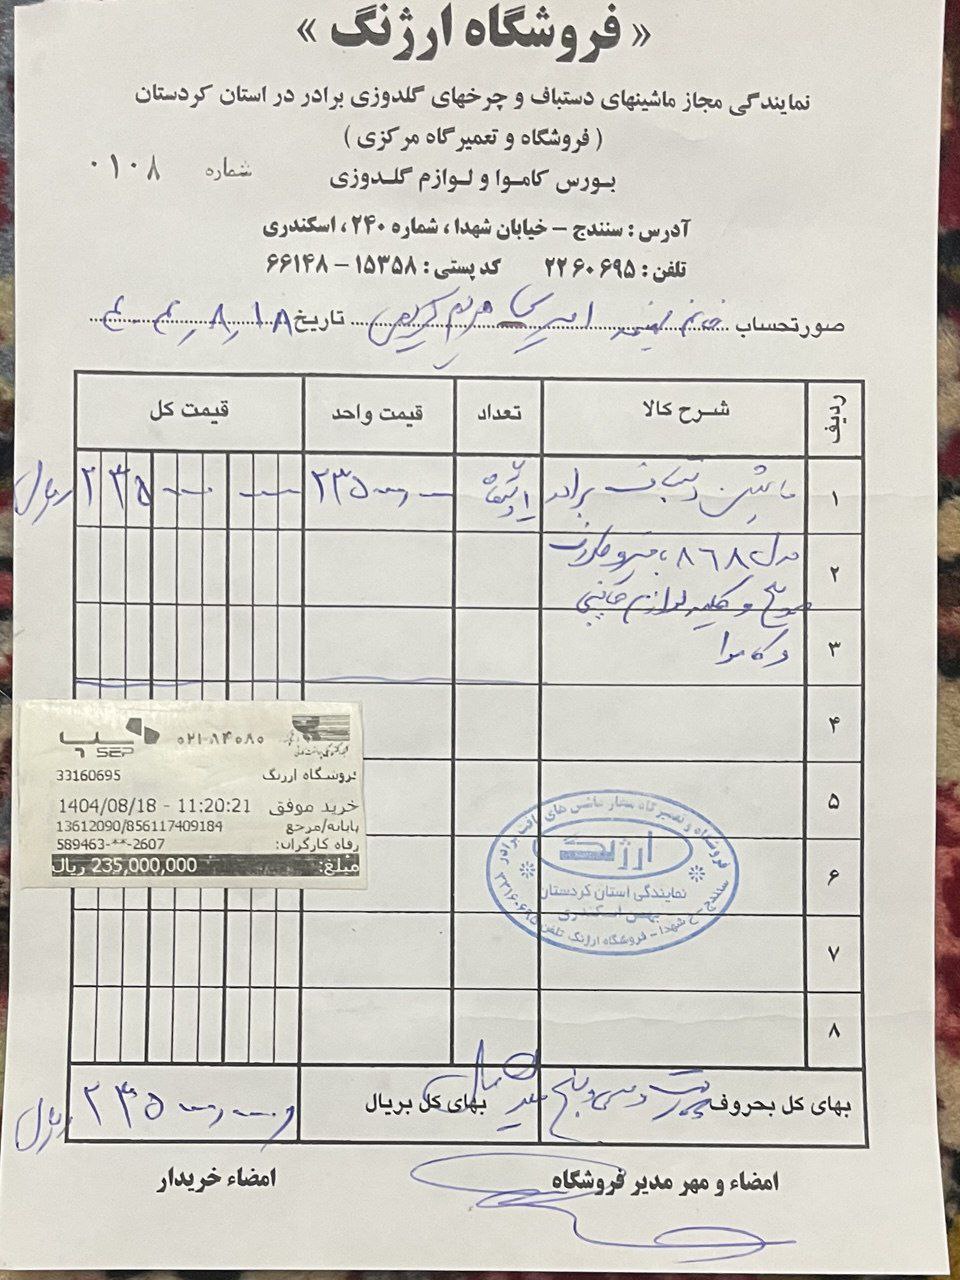 « فروشگاه ارژنگ »
نمایندگی مجاز ماشینهای دستباف و چرخهای گلدوزی برادر در استان کردستان
( فروشگاه و تعمیرگاه مرکزی )
بورس کاموا و لوازم گلدوزی
شماره ۰۱۰۸
آدرس : سنندج – خیابان شهدا ، شماره ۲۴۰ ، اسکندری
تلفن : ۲۲۶۰۶۹۵ کد پستی : ۱۵۳۵۸ – ۶۶۱۴۸
صورتحساب خانم تاریخ
ردیف شرح کالا تعداد قیمت واحد قیمت کل
۱ ماشین دستباف برادر ۲۳۵ ۲۳۵ ریال
۲ مدل ۸۶۸
و کلیه لوازم جانبی
۳ و کاموا
۴
۵
۶
۷
۸
SEP ۰۲۱-۸۴۰۸۰
فروشگاه ارژنگ 33160695
خرید موفق 11:20:21 - 1404/08/18
پایانه/مرجع 13612090/856117409184
رفاه کارگران: 589463-**-2607
مبلغ: 235,000,000 ریال
ارژنگ
نمایندگی استان کردستان
بهمن اسکندری
سنندج - خ شهدا - فروشگاه ارژنگ تلفن ۳۳۱۶۰۶۹۵
بهای کل بحروف دویست و سی و پنج بهای کل بریال ۲۳۵ ریال
امضاء و مهر مدیر فروشگاه امضاء خریدار